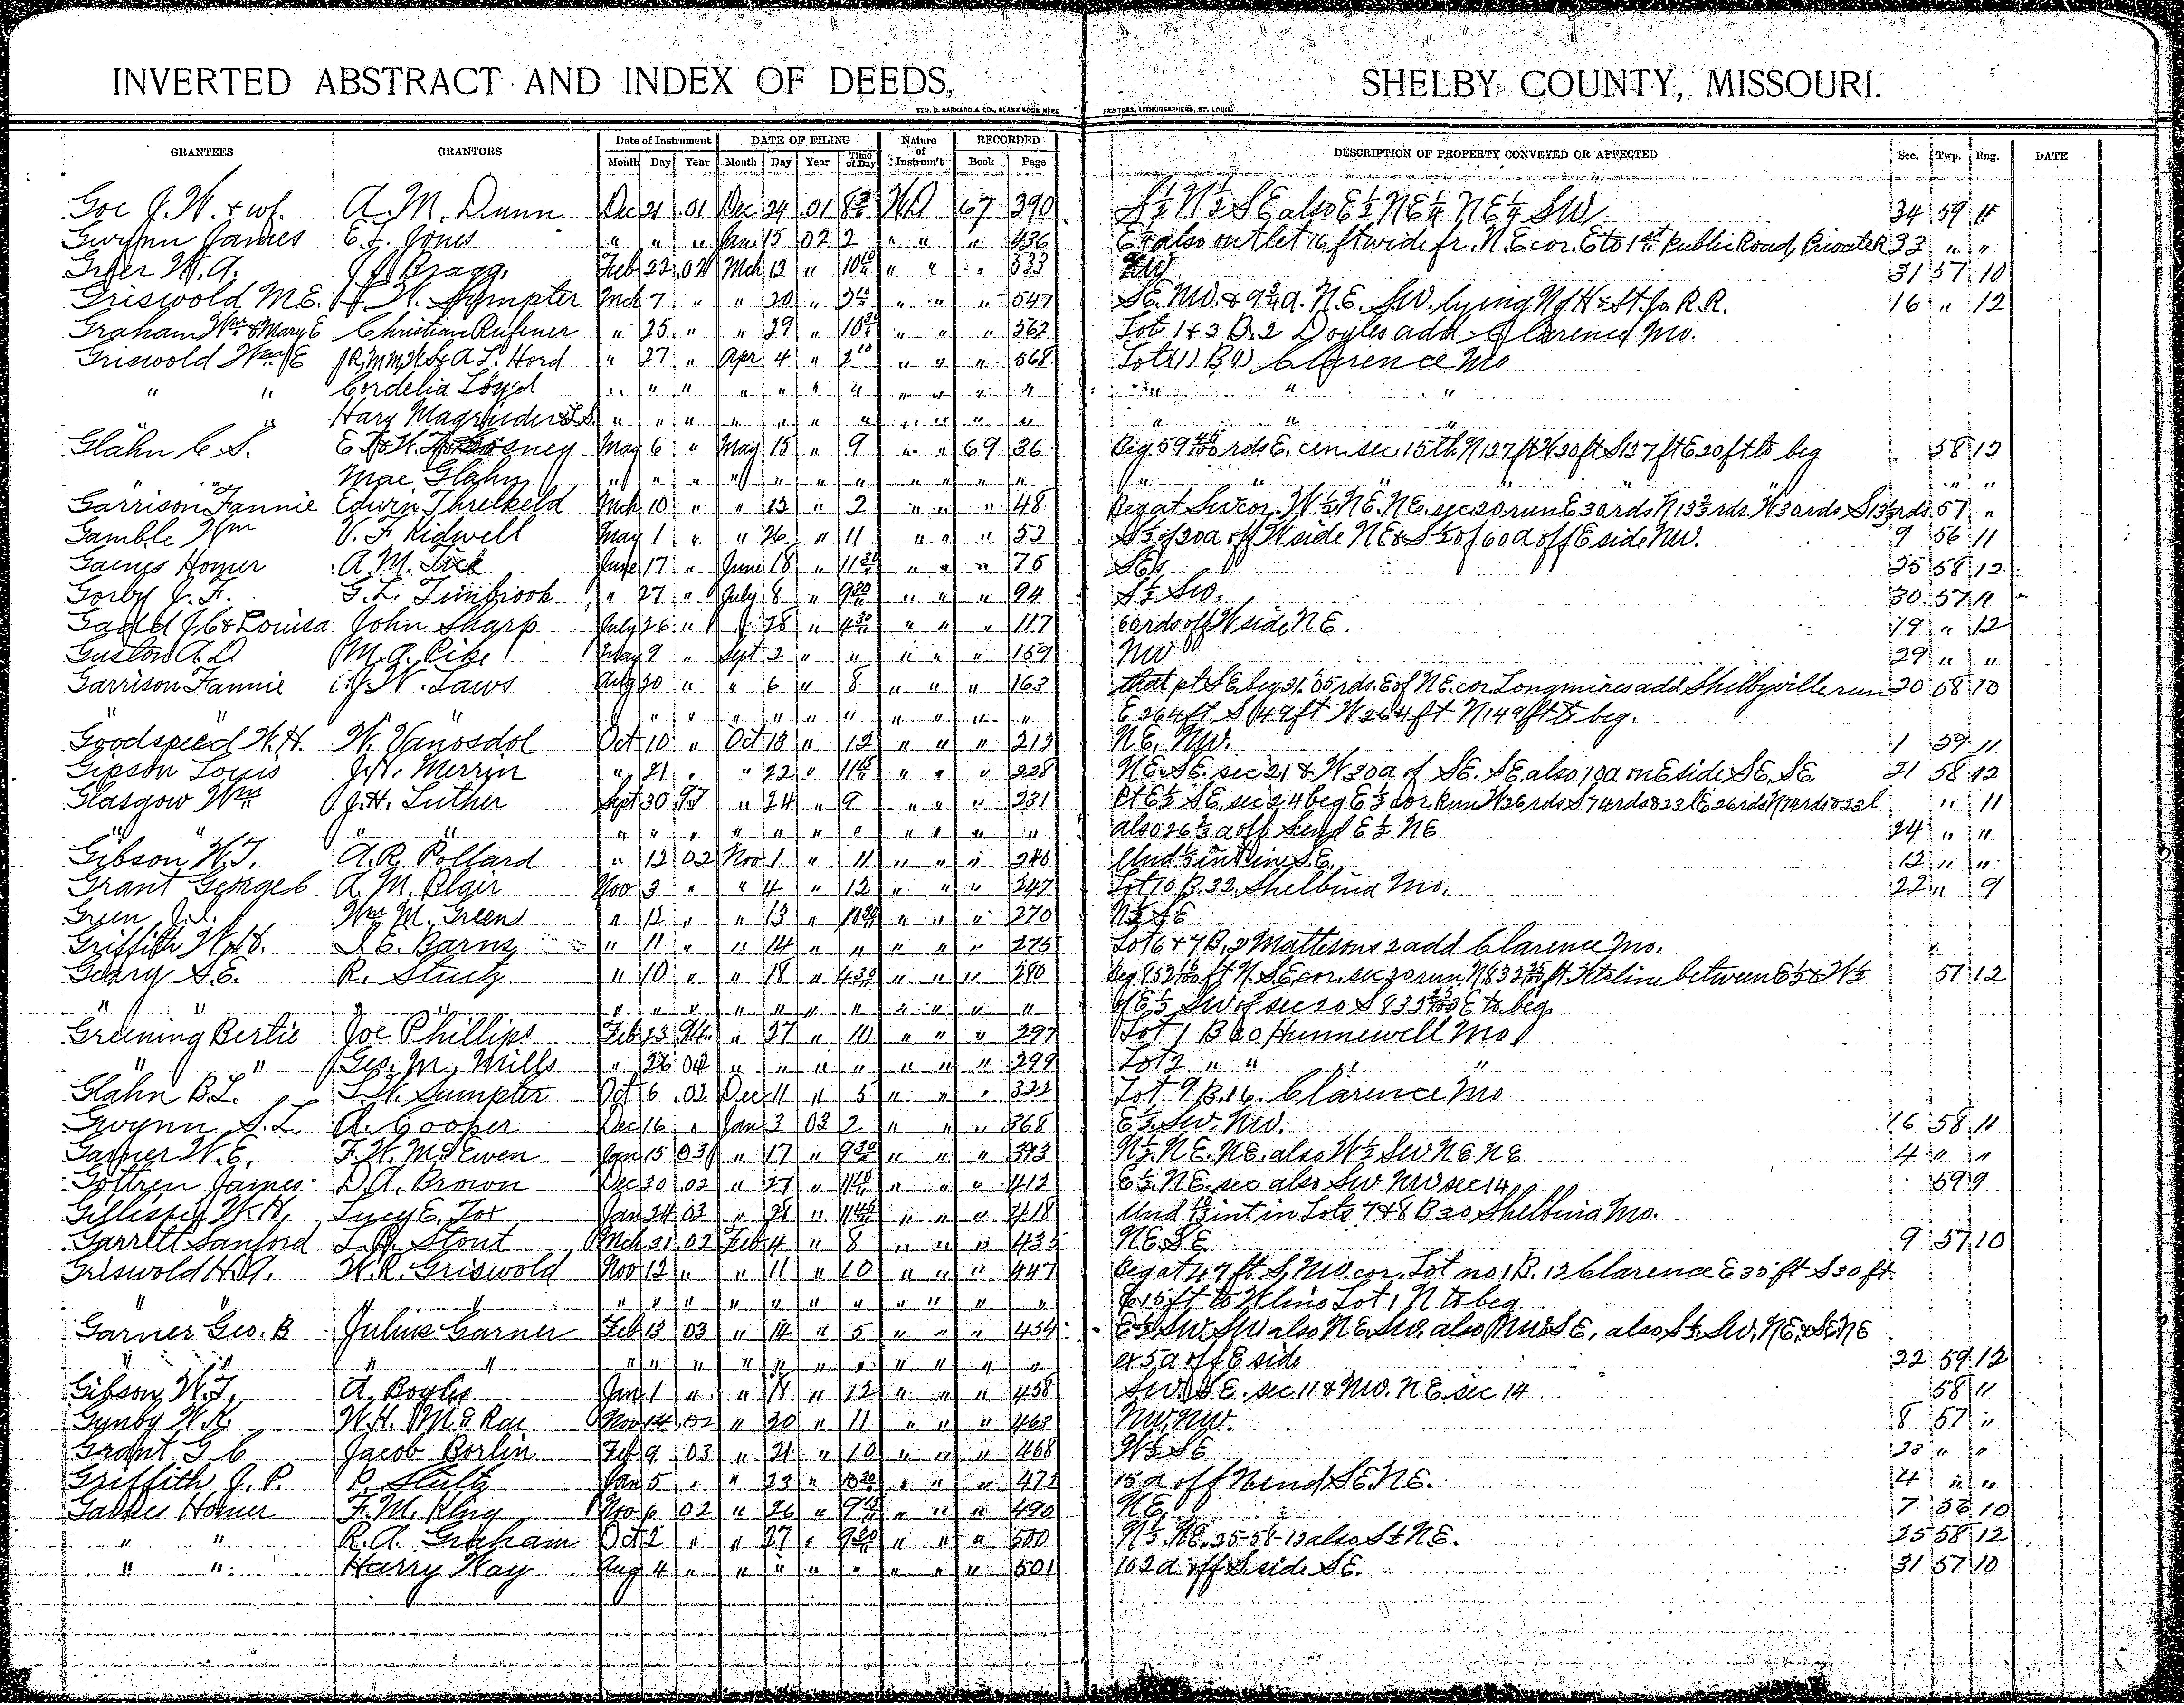 INVERTED ABSTRACT AND INDEX OF DEEDS, SHELBY COUNTY, MISSOURI.
GEO. D. BARNARD & CO., BLANK BOOK MFRS PRINTERS, LITHOGRAPHERS, ST. LOUIS.
GRANTEES GRANTORS Date of Instrument DATE OF FILING Nature of Instrum't RECORDED DESCRIPTION OF PROPERTY CONVEYED OR AFFECTED Sec. Twp. Rng. DATE
Month Day Year Month Day Year Time of Day Book Page
Goe J.W. & wf. A.M. Dunn Dec 21 01 Dec 24 01 8 30 WD 67 390 S½ N½ SE also E½ NE¼ NE¼ SW 34 59 11
Gwynn James E.L. Jones " " " Jan 15 02 2 " " " 436 also outlet 16 ft wide fr. NE cor. E to 1st Public Road, Private R 33 " "
Greer W.A. Bragg. Feb 22 02 Mch 12 " 10 " " " 533 31 57 10
Griswold M.E. Sumpter Mch 7 " " 20 " " " " 547 SE. NW. & 9¾ a. N.E. SW. lying N of H & St. Jo. R.R. 16 " 12
Graham Wm & Mary E Christian Rufener " 25 " " 29 " 10 30 " " " 562 Lot 1 & 3 B. 2 Doyles add Clarence Mo.
Griswold Wm E A.L. Hord " 27 " Apr 4 " 2 10 " " " 568 Lot (1) B (1) Clarence Mo
" " Cordelia Loyd " " " " " " " " " " " " " "
Hary Magruder " " " " " " " " " " " " "
Glahn C.S. May 6 " May 15 " 9 " " 69 36 Beg 59 rds E. cen. sec 15 th N 127 ft W 20 ft S 127 ft E 20 ft to beg 58 12
" " Mae Glahn " " " " " " " " " " " " " " "
Garrison Fannie Edwin Threlkeld Mch 10 " " 13 " 2 " " " 48 Beg at SW cor. W½ NE. NE. sec 20 run E 30 rds N 13⅓ rds W 30 rds S 13⅓ rds 57 "
Gamble Wm V.F. Kidwell May 1 " " 26 " 11 " " " 53 S½ of 20 a off W side NE & S½ of 60 a off E side NW. 9 56 11
Gaines Homer A.M. June 17 " June 18 " 11 30 " " " 75 25 58 12
Gorby J.F. G.L. Timbrook " 27 " July 8 " 9 20 " " " 94 S½ SW. 30 57 11
& Louisa John Sharp July 26 " " 28 " 4 30 " " " 117 60 rds off W side N E. 19 " 12
A.D M.A. Pike May 9 " Sept 2 " " " " " 159 NW 29 " "
Garrison Fannie J.W. Laws Aug 30 " " 6 " 8 " " " 163 that pt SE. beg 31.05 rds. E of N E. cor Longmires add Shelbyville run 20 58 10
" " " " " " " " " " " " " " E 264 ft S 149 ft W 264 ft N 149 ft to beg.
Goodspeed W.H. W. Vanosdol Oct 10 " Oct 18 " 12 " " " 213 NE. NW. 1 59 11
Gipson Louis J.H. Merrin " 21 " " 22 " 11 15 " " " 228 NE. SE. sec 21 & W 30 a of SE. SE. also 10 a on E side SE. SE. 21 58 12
Glasgow Wm J.H. Luther Sept 30 97 " 24 " 9 " " " 231 Pt E½ SE. sec 24 beg E½ cor Run W 26 rds S 74 rds & 23 l E 26 rds N 74 rds & 23 l " 11
" " " " " " " " " " " " " " also 26⅔ a off S end E½ NE 24 " "
Gibson W.T. A.R. Pollard " 12 02 Nov 1 " 11 " " " 246 Und ½ int in S.E. 12 " "
Grant George C A.M. Blair Nov 3 " " 4 " 12 " " " 247 Lot 10 B. 32. Shelbina Mo. 22 " 9
Green J.A. Wm M. Green " 12 " " 13 " " " " 270 N½ SE
Griffith W.H. L.E. Barns " 11 " " 14 " " " " " 275 Lot 6 & 7 B. 2 Mattisons 2 add Clarence Mo.
Geary S.E. R. Stutz " 10 " " 18 " 4 30 " " " 280 57 12
" " " " " " " " " " " " of E½ SW of sec 20 E to beg
Greening Bertie Joe Phillips Feb 23 " 27 " 10 " " " 297 Lot 1 B 60 Hunnewell Mo
" " Geo. M. Mills " 26 02 " " " " " " " 299 Lot 2 " " " "
Glahn B.L. Sumpter Oct 6 02 Dec 11 " 5 " " " 322 Lot 9 B. 16. Clarence Mo
Gwynn S.L. A. Cooper Dec 16 " Jan 3 03 2 " " " 368 E½ SW. NW. 16 58 11
Garner W.E. F.W. McEwen Jan 15 03 " 17 " 9 30 " " " 393 N½ NE. NE. also W½ SW NE NE 4 " "
Gottren James D.A. Brown Dec 20 02 " 27 " " " " 412 E½ NE. sec also SW NW sec 14 59 9
Gillispie W.H. Lucy E. Fox Jan 24 03 " 28 " 11 45 " " " 418 int in Lots 7 & 8 B 20 Shelbina Mo.
Garrett Sanford Stout Mch 31 02 Feb 4 " 8 " " " 435 N E. S E 9 57 10
Griswold H.A. W.R. Griswold Nov 12 " " 11 " 10 " " " 447 Beg at 47 ft S. NW. cor. Lot no 1 B. 12 Clarence E 35 ft S 30 ft
" " " " " " " " " " " " " " 15 ft to W line Lot 1 N to beg
Garner Geo. B Julius Garner Feb 13 03 " 14 " 5 " " " 454 E½ SW. SW also NE. SW. also NW SE, also S½ SW. NE. & SE. NE
" " " " " " " " " " " " " " ex 5 a off E side 22 59 12
Gibson W.T. A. Boyles Jan 1 " " 18 " 12 " " " 458 SW. SE. sec 11 & NW. NE sec 14 58 11
Gynby W.H. W.H. McRae Nov 14 02 " 20 " 11 " " " 463 NW. NW. 8 57 "
Grant G C Jacob Borlin Feb 9 03 " 21 " 10 " " " 468 W½ SE 20 " "
Griffith J.P. P. Stultz Jan 5 " " 23 " 10 30 " " " 472 15 a off N end SE. NE. 4 " "
Homer F.M. King Nov 6 02 " 26 " 9 15 " " " 490 NE. 7 56 10
" " R.A. Graham Oct 2 " " 27 " 9 30 " " " 500 N½ NE. 25-58-12 also S½ NE. 25 58 12
" " Harry Way Aug 4 " " " " " " " " 501 102 a off S. side SE. 31 57 10